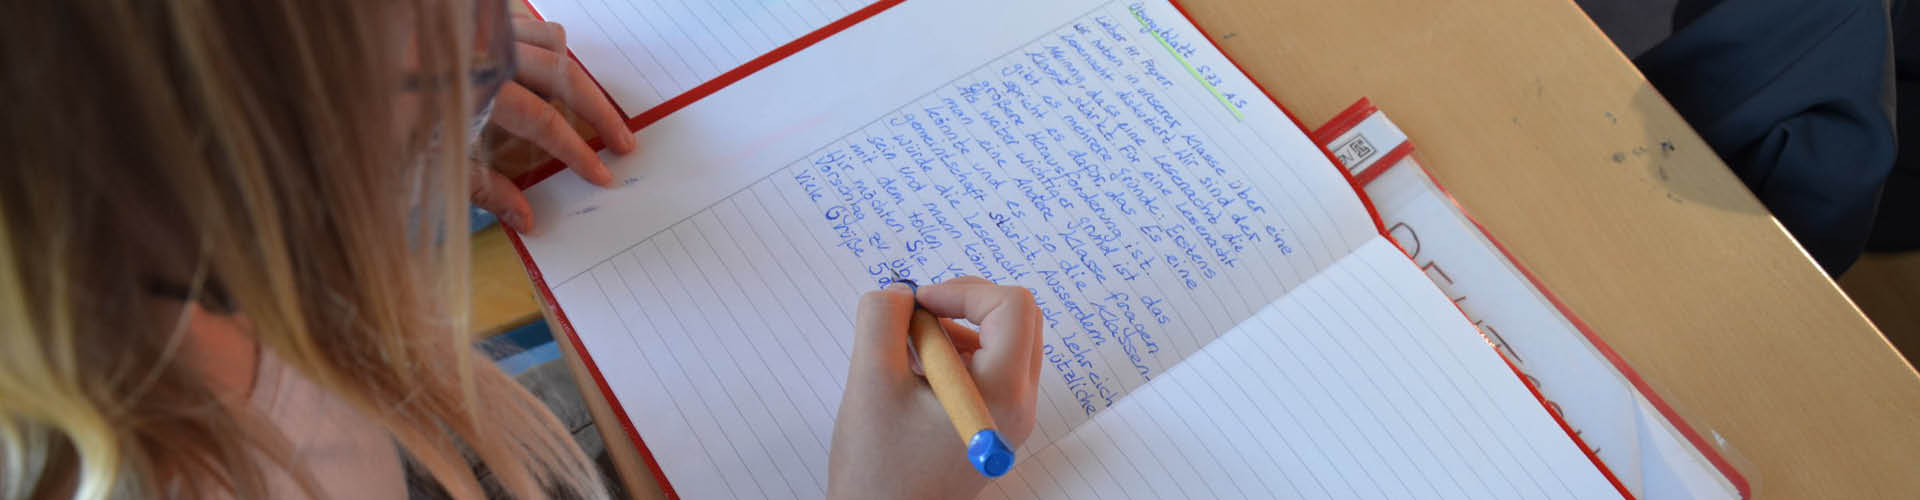 Übungsblatt S.73 A.5
Lieber Hr. Peper.
Wir haben in unserer Klasse über eine
Lesenacht diskutiert. Wir sind der
Meinung, das eine Lesenacht die
Klasse stärkt. Für eine Lesenacht
gibt es mehrere gründe: Erstens
spricht es dafor, das Es eine
größere Herausforderung ist.
Als weiter wichtiger grund ist das
man eine Andere Klasse fragen
könnte und es so die Klassen-
gemeinschaft stärkt. Ausserdem
würde die Lesenacht auch Lehreich
sein und mann könnt nützliche
mit den tollen
Wir möchten Sie
Vorschlag zu üb
Viele Grüße 5a
DEUTSCH